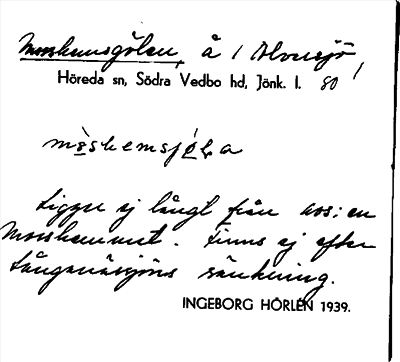 Mosshemsgölen, å / Alvesjö,
Höreda sn, Södra Vedbo hd, Jönk. l. 80
Ligger ej långt från
Mosshemmet. Finns ej efter
Långanäsjöns sänkning.
INGEBORG HÖRLÉN 1939.